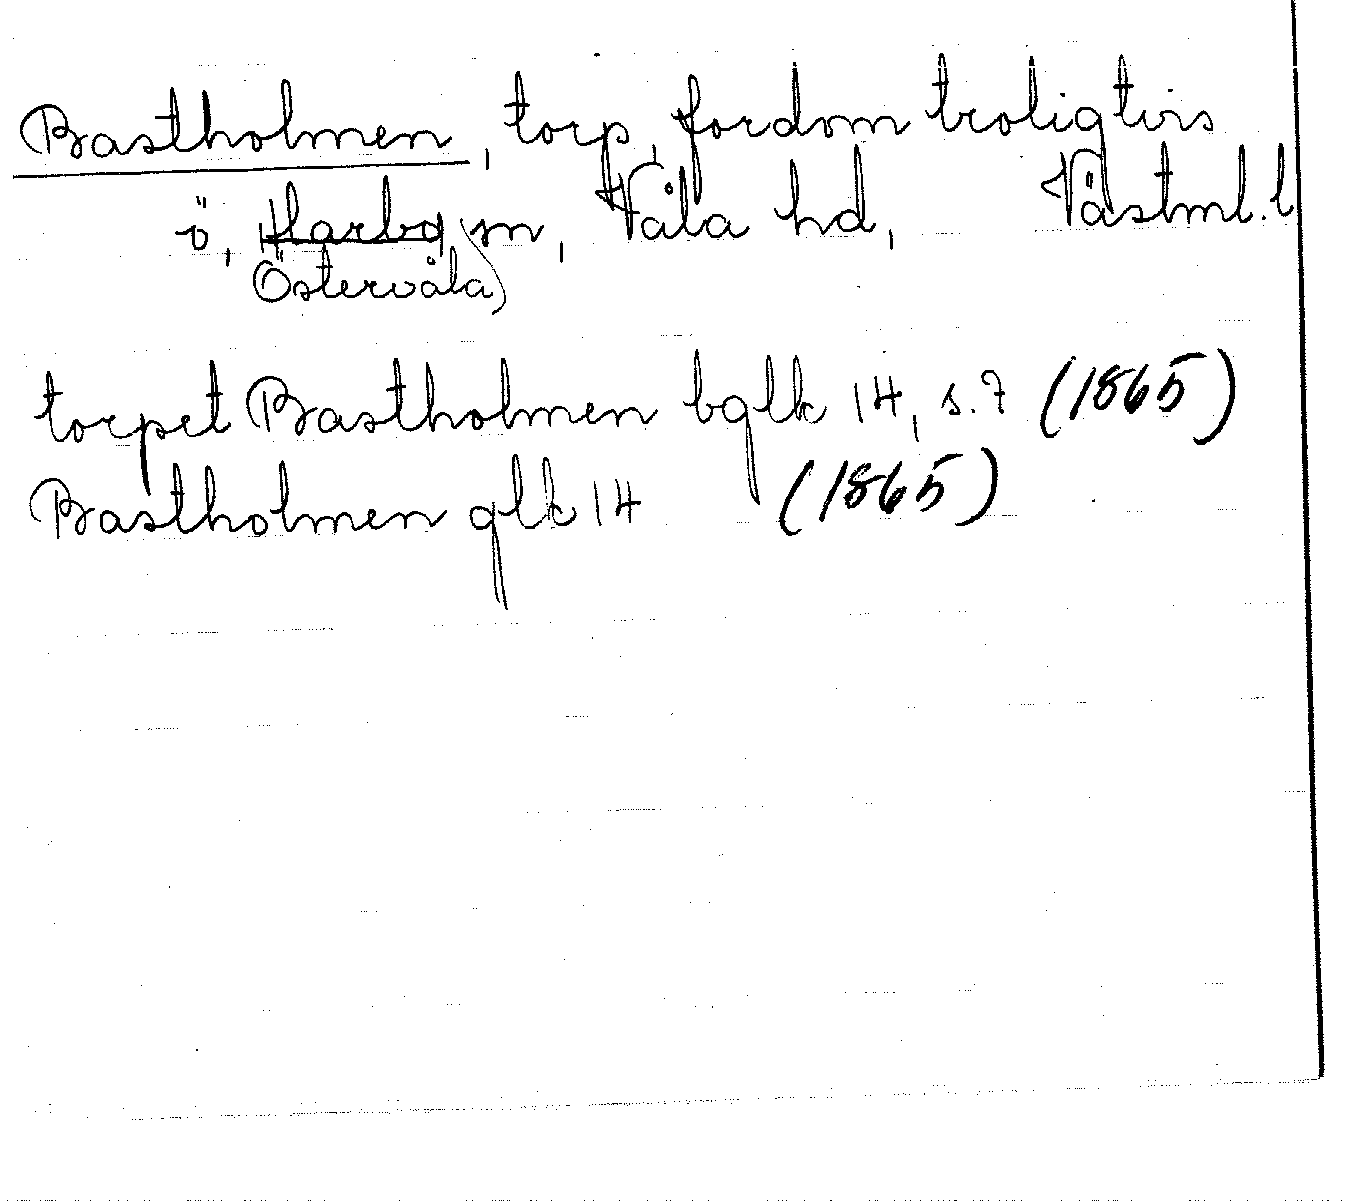 Bastholmen, torp, fordom troligtvis
ö, Harbo sn, Våla hd, Västml. l
Östervåla
torpet Bastholmen bglk 14, s. 7 (1865)
Bastholmen glk 14 (1865)